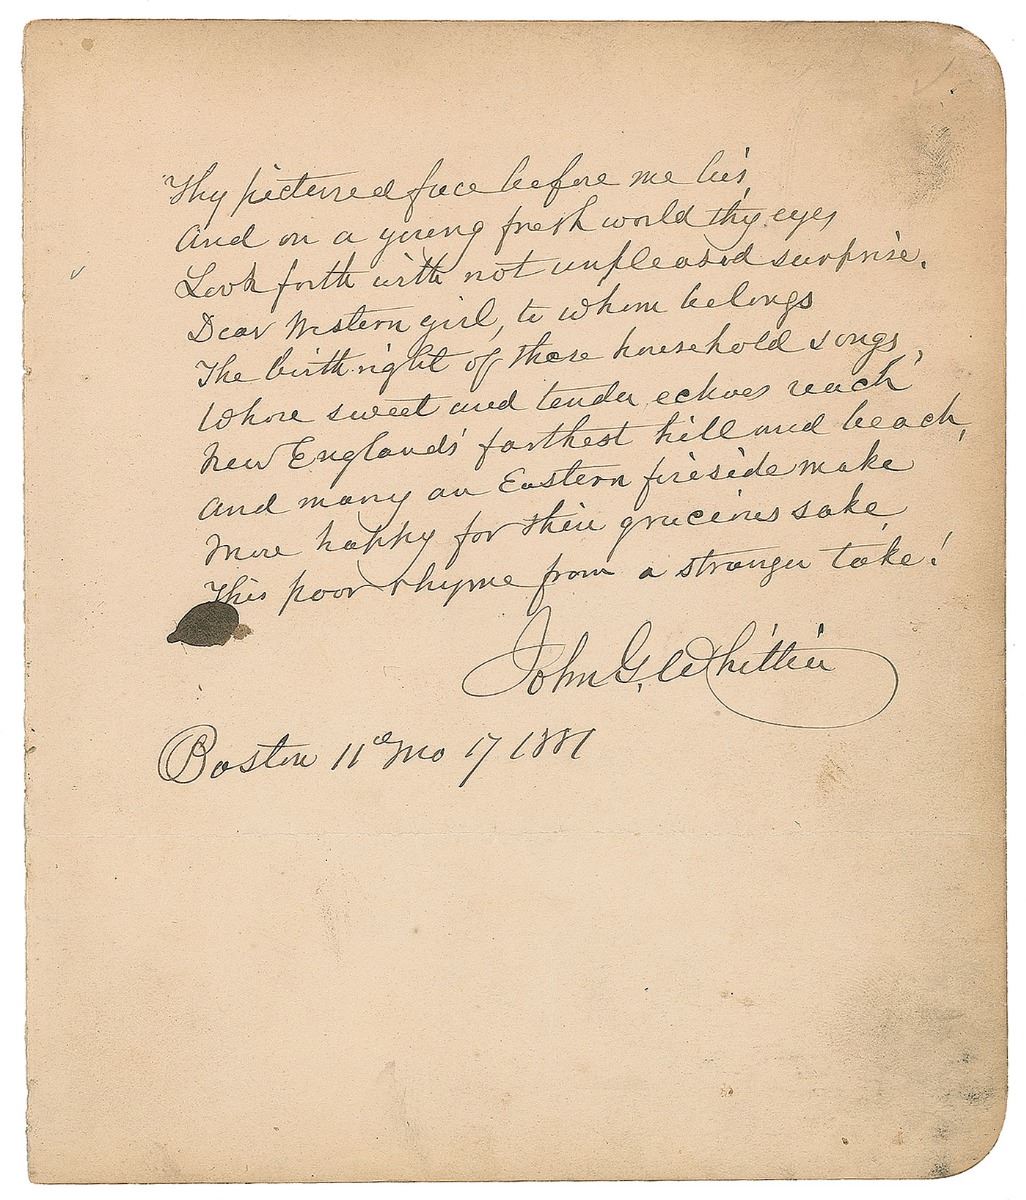 Thy pictured face before me lies,
And on a young fresh world thy eyes
Look forth with not unpleased surprise.
Dear Western girl, to whom belongs
The birthright of these household songs,
Whose sweet and tender echoes reach
New England's farthest hill and beach,
And many an Eastern fireside make
More happy for their gracious sake,
This poor rhyme from a stranger take!
John G. Whittier
Boston 11th Mo 17 1881